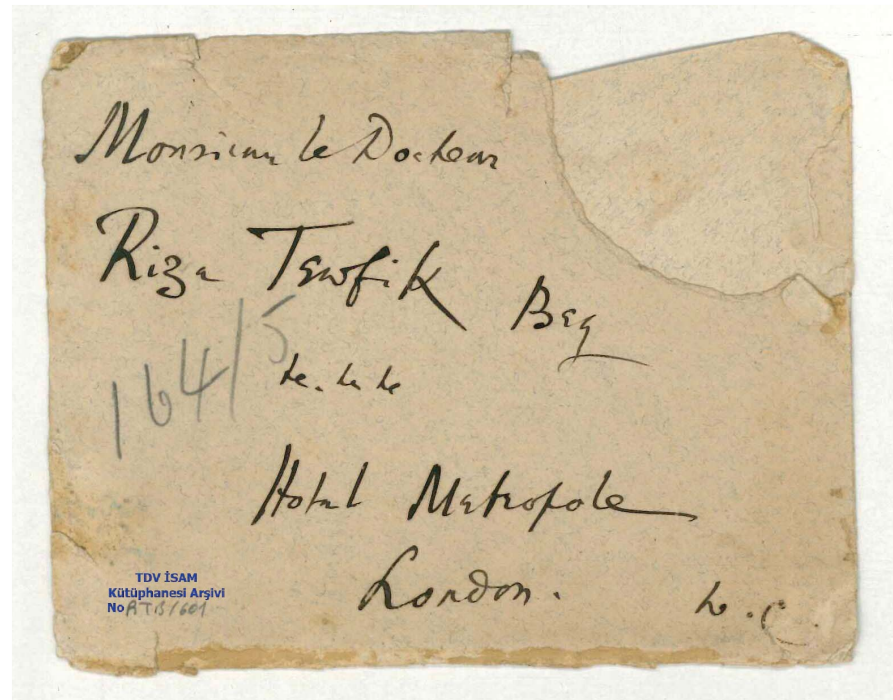 Monsieur le Docteur
Riza Tewfik Bey
164/5
etc. etc. etc.
Hotel Metropole
London. W.C.
TDV İSAM
Kütüphanesi Arşivi
No RTB/601